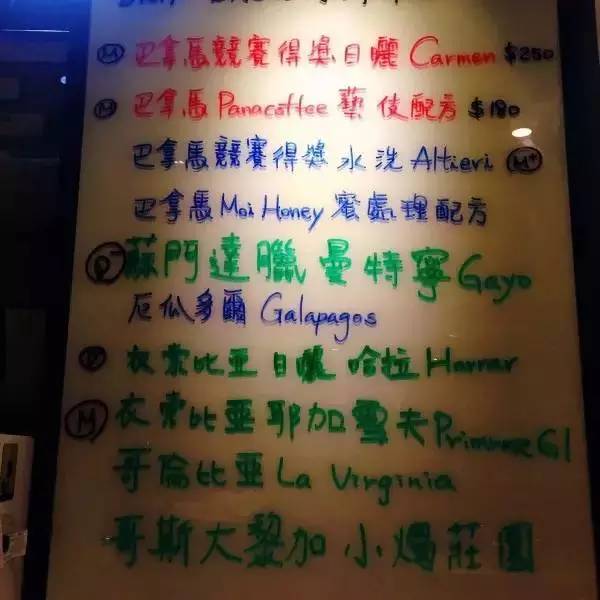 Ⓜ 巴拿馬競賽得獎日曬 Carmen $250
Ⓜ 巴拿馬 Panacoffee 藝伎配方 $180
巴拿馬競賽得獎 水洗 Altieri M+
巴拿馬 Moi Honey 蜜處理配方
蘇門達臘 曼特寧 Gayo
厄瓜多爾 Galapagos
衣索比亞 日曬 哈拉 Harrar
Ⓜ 衣索比亞 耶加雪夫 Primrose G1
哥倫比亞 La Virginia
哥斯大黎加 小燭莊園